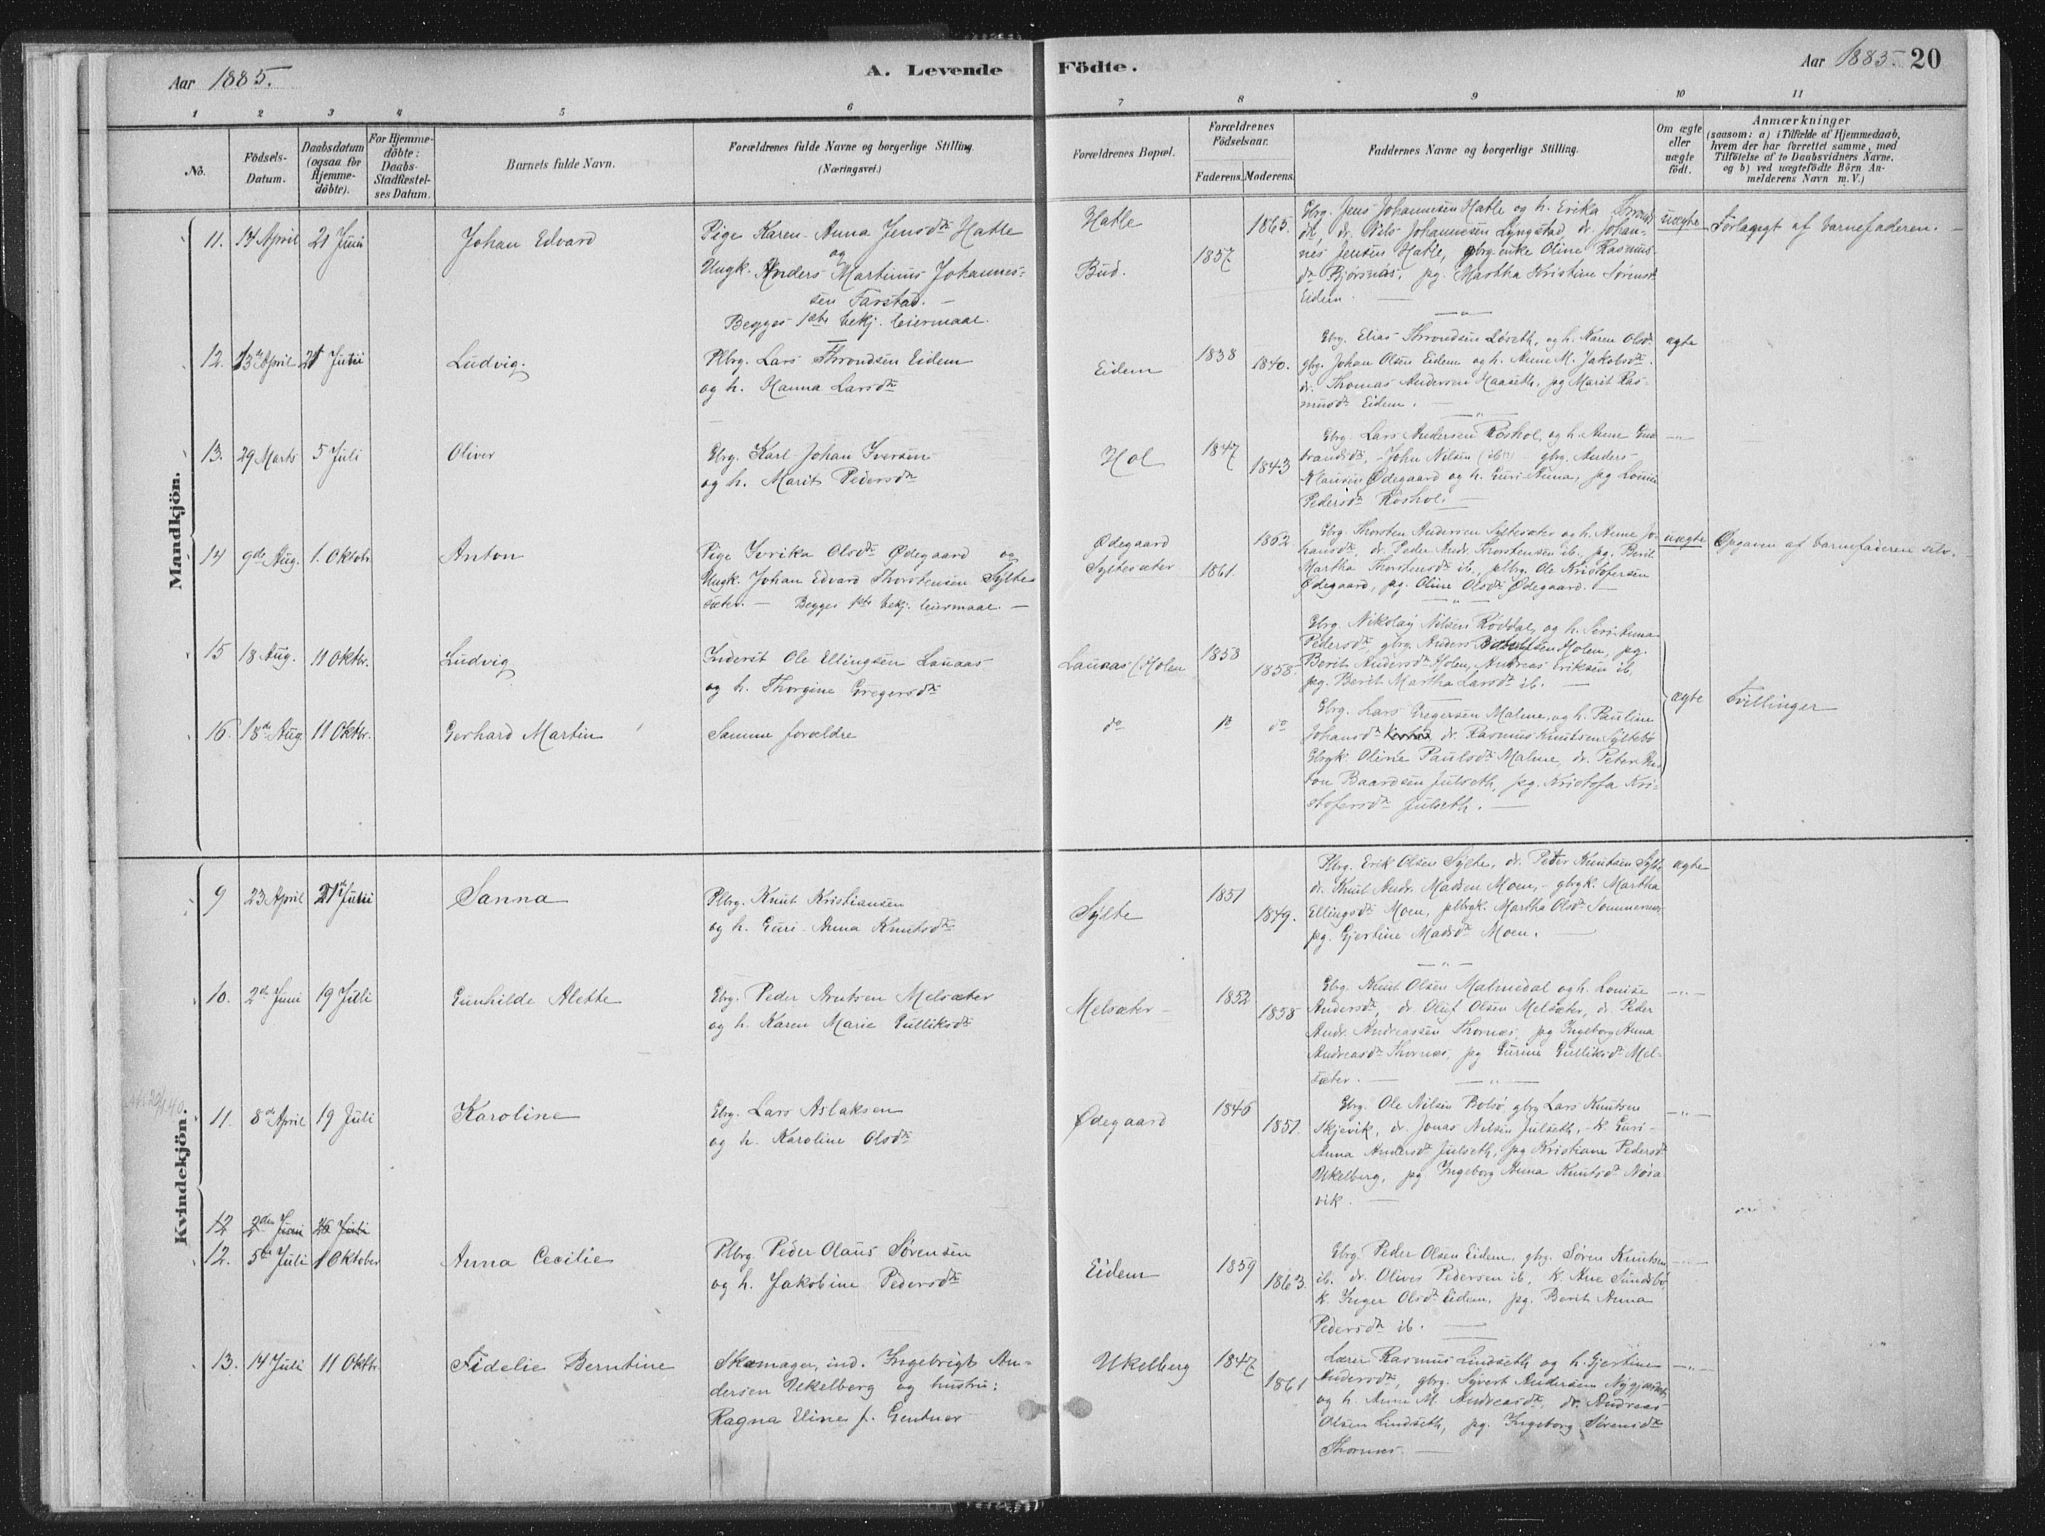 Aar 1885.
A. Levende
Födte.
Aar 1885. 20
1 2 3 4 5 6 7 8 9 10 11
No.
Födsels-
Datum.
Daabsdatum
(ogsaa for
Hjemme-
döbte).
For Hjemme-
döbte:
Daabs-
Stadfæstel-
ses Datum.
Barnets fulde Navn.
Forældrenes fulde Navne og borgerlige Stilling
(Næringsvei.)
Forældrenes Bopæl.
Forældrenes
Födselsaar.
Faderens. Moderens.
Faddernes Navne og borgerlige Stilling.
Om ægte
eller
uægte
födt.
Anmærkninger
(saasom: a) i Tilfælde af Hjemmedaab,
hvem der har forrettet samme, med
Tilföielse af to Daabsvidners Navne.
og b) ved uægtefödte Börn An-
melderens Navn m. V.)
Mandkjön.
11. 14 April 21 Juni Johan Edvard
Pige Karen Anna Jensdtr Hatle
og
Ungk. Anders Martinus Johannes-
sen Farstad. —
Begges 1ste bekj. leiermaal.
Hatle
Bud.
1857 1865.
Gbrg. Jens Johannesen Hatle og h. Erika Thronds
dtr. dr. Nils Johannesen Lyngstad, dr. Johan-
nes Jensen Hatle, gbrg.enke Oline Rasmus-
dtr Bjørsnæs, pg. Martha Kristine Sørensdtr
Eidem. —
uægte
Forlagegt af barnefaderen. —
12. 13de April 21 Juni Ludvig.
Plbrg. Lars Throndsen Eidem
og h. Hanna Larsdtr
Eidem
1838 1840.
Gbrg. Elias Throndsen Løseth, og h. Karen Olsdtr
gbrg. Johan Olsen Eidem og h. Anne M. Jakobsdtr.
dr. Thomas Andersen Haaseth, pg Marit Ras-
musdtr Eidem. —
ægte
13. 29 Marts 5 Juli Oliver
Gbrg. Karl Johan Iversen
og h. Marit Pedersdtr
Hol
1847 1843
Gbrg. Lars Andersen Røshol, og h. Anne Gud
brandsdtr, - John Nilsen (ib.) - gbrg. Anders
Klausen Ødegaard og h. Guri Anna, pg Louise
Pedersdtr Røshol. —
—"—
14 9de Aug. 1. Oktobr. Anton
Pige Serika Olsdtr Ødegaard og
Ungk. Johan Edvard Thorstensen Sylte-
sæter. — Begges 1ste bekj. leiermaal. —
Ødegaard
Syltesæter
1862
1861.
Gbrg. Thorsten Andersen Syltesæter og h. Anne Jo-
hansdtr, dr. Peder Andr. Thorstensen ib., pg. Berit
Martha Thorstensdtr ib., plbrg. Ole Kristofersen
Ødegaard, pg. Oline Olsdtr Ødegaard. —
uægte
Opgaven af barnefaderen selv. —
15 18 Aug. 11 Oktbr. Ludvig
Inderst Ole Ellingsen Lauaas
og h. Thorgine Gregersdtr
Lauaas / Holen
1853 1858.
Gbrg. Nikolay Nilsen Røddal, og h. Seri Anna
Pedersdtr, gbrg. Anders Holen, pg.
Berit Andersdtr Holen, Andreas Eriksen ib,
pg. Berit Martha Larsdtr ib. —
ægte
Tvillinger
16. 18de Aug. 11 Oktbr. Gerhard Martin
Samme forældre
do do do
Gbrg. Lars Gregersen Malme, og h. Pauline
Johansdtr dr. Rasmus Knutsen Syltebø
Gbrgk. Olivie Paulsdtr Malme, dr. Peter An-
ton Baardsen Julseth, pg. Kristofa Kri-
stofersdtr Julseth. —
Kvindekjön.
9 23 April 21 Juni Sanna
Plbrg. Knut Kristiansen
og h. Guri Anna Knutsdtr
Sylte
1851 1849.
Plbrg. Erik Olsen Sylte, dr. Peder Knutsen Sylte
dr. Knut Andr. Madsen Moen, - gbrgk. Martha
Ellingsdtr Moen, plbrgk. Martha Olsdtr Sommernes
pg. Gjertine Madsdtr Moen. —
ægte
10. 2den Juni 19 Juli Gunhilde Alette
Gbrg. Peder Knutsen Melsæter
og h. Karen Marie Gulliksdtr
Melsæter
1852 1858
Gbrg Knut Olsen Malmedal og h. Louise
Andersdtr, dr. Oluf Olsen Melsæter, dr. Peder
Andr. Andreassen Thornæs, pg Ingeborg Anna
Andreasdtr Thornæs, pg Gurine Gulliksdtr Mel-
sæter. —
—"—
11. 8de April 19 Juli Karoline
Gbrg. Lars Aslaksen
og h. Karoline Olsdtr
Ødegaard
1846 1851.
Gbrg. Ole Nilsen Bolsø, gbrg Lars Knutsen
Skjevik, dr. Jonas Nilsen Julseth, - k. Guri-
Anna Andersdtr Julseth, pg Kristiane Pedersdtr
Ukelberg, pg. Ingeborg Anna Knutsdtr Nøsa-
vik. —
—"—
12 2den Juni 26 Juli
12. 5te Juli 1 Oktober Anna Cecilie
Plbrg. Peder Olaus Sørensen
og h. Jakobine Pedersdtr
Eidem
1859 1863.
Gbrg. Peder Olsen Eidem, gbrg. Søren Knutsen
ib. dr. Oliver Pedersen ib, k. Ane Sundsbø,
k. Inger Olsdtr Eidem, pg. Berit Anna
Pedersdtr ib. —
—"—
13. 14 Juli 11 Oktbr. Fidelie Berntine
Skomager, ind. Ingebrigt An-
dersen Ukelberg og hustru:
Ragna Eline f. Gentner
Ukelberg
1847 1861
Lærer Rasmus Lindseth og h. Gjertine
Andersdtr, gbrg. Syvert Andersen Nygjærdet
og h. Anne M. Andreasdtr, dr. Andreas
Olsen Lindseth, pg. Ingeborg Sørensdtr
Thornæs. —
—"—